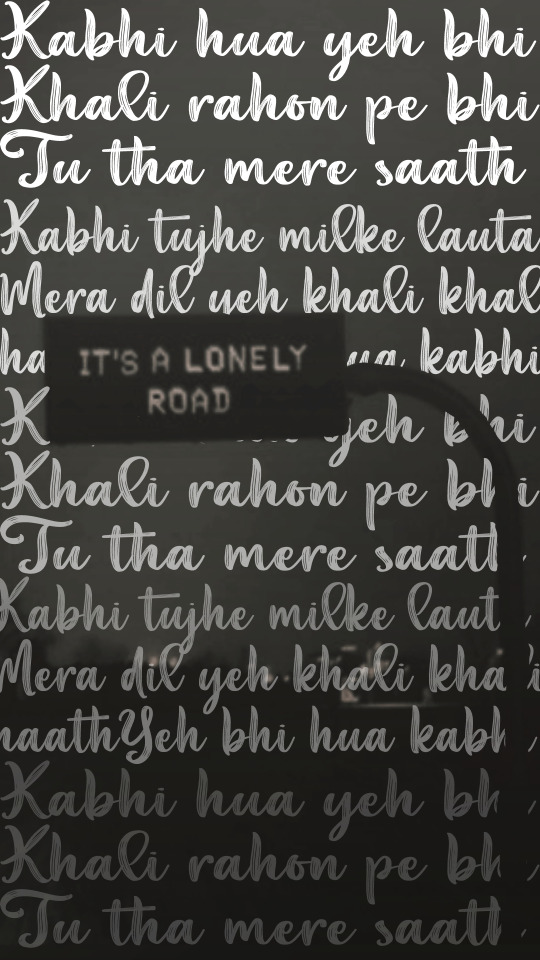 Kabhi hua yeh bhi
Khali rahon pe bhi
Tu tha mere saath
Kabhi tujhe milke lauta
Mera dil yeh khali khal
ha kabhi
IT'S A LONELY
ROAD
yeh bhi
Khali rahon pe bhi
Tu tha mere saatl
Kabhi tujhe milke laut
Mera dil yeh khali kha
haathYeh bhi hua kabh
Kabhi hua yeh bh
Khali rahon pe bh
Tu tha mere saatl